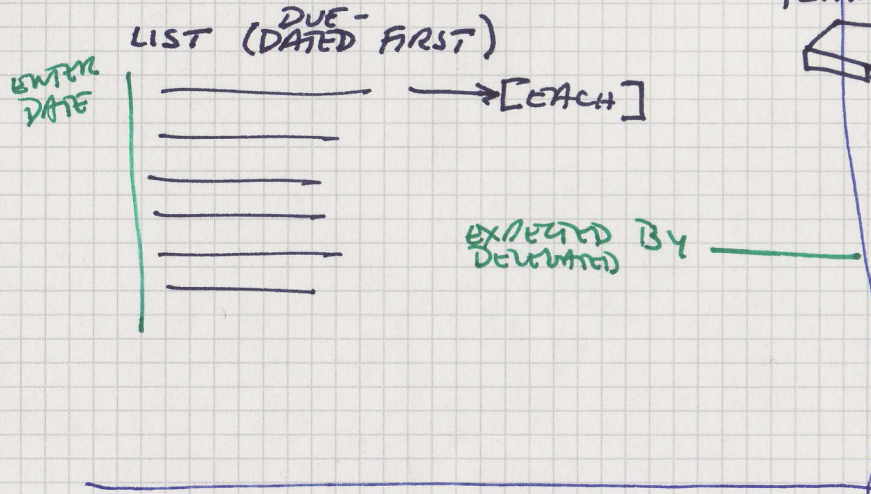 LIST (DUE-
DATED FIRST)
ENTER
DATE
[EACH]
EXPECTED BY
DELEGATED